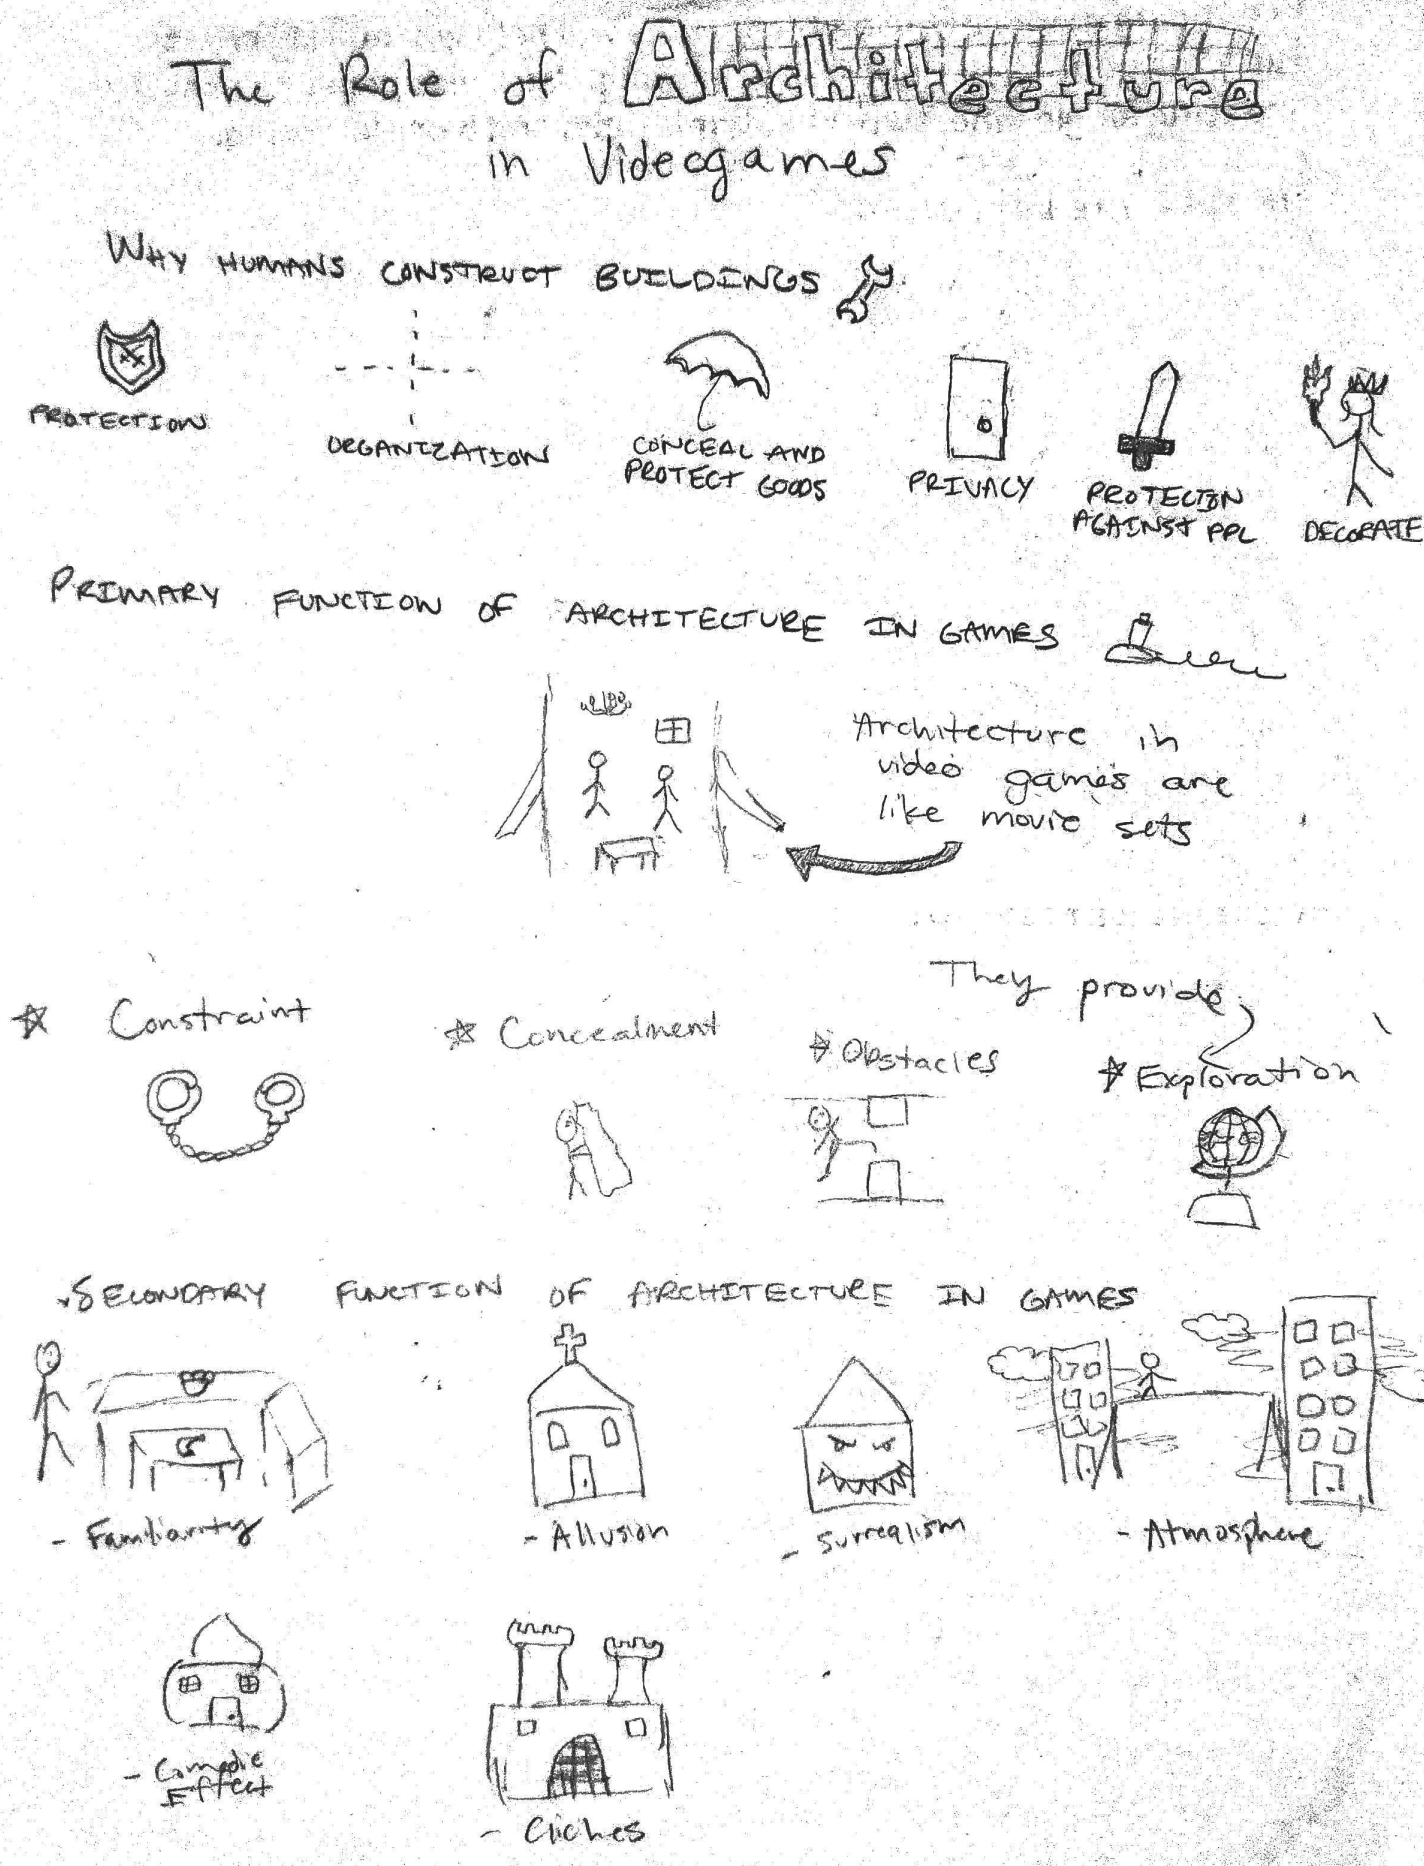 The Role of Architecture
in Videogames
WHY HUMANS CONSTRUCT BUILDINGS
PROTECTION
ORGANIZATION
CONCEAL AND
PROTECT GOODS
PRIVACY
PROTECTION
AGAINST PPL
DECORATE
PRIMARY FUNCTION OF ARCHITECTURE IN GAMES
Architecture in
video games are
like movie sets
They provide
Constraint
Concealment
Obstacles
Exploration
SECONDARY FUNCTION OF ARCHITECTURE IN GAMES
- Familiarity
- Allusion
- Surrealism
- Atmosphere
- Comedic
Effect
- Cliches